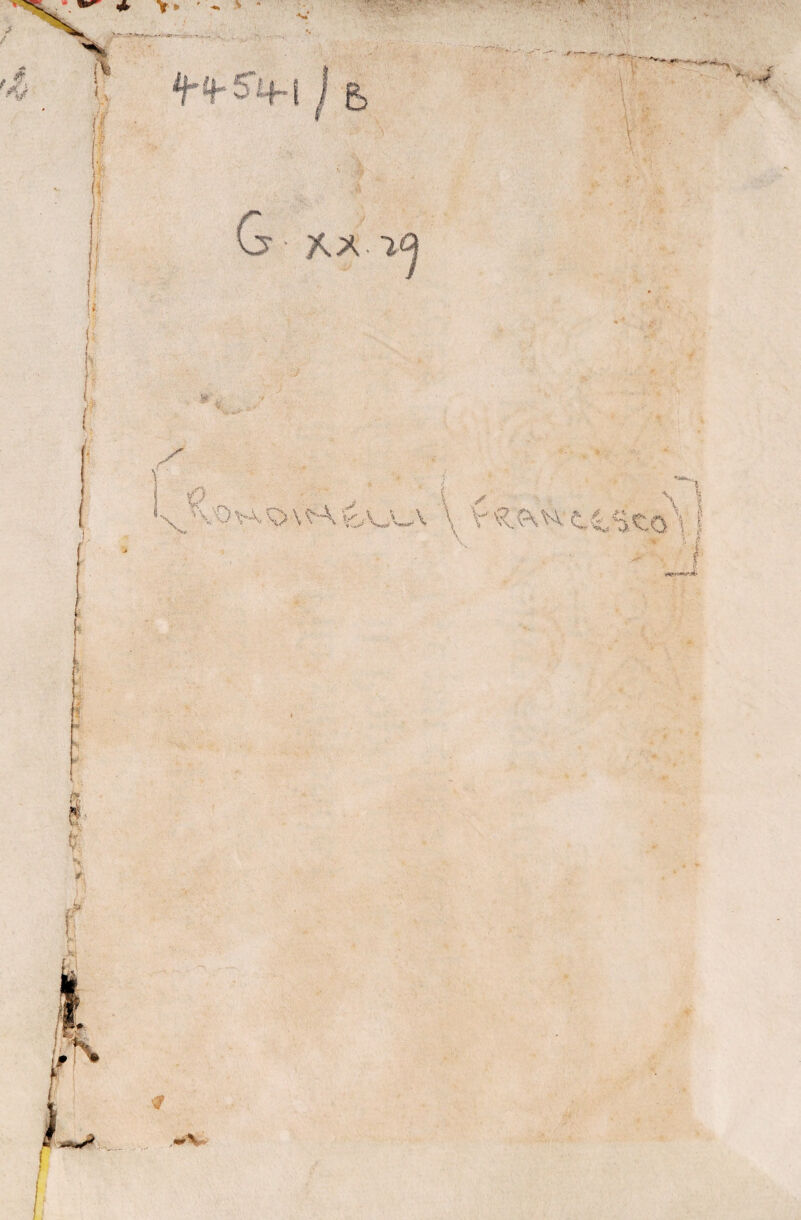 44541/B
G. xx. 29
[RONDINELLI (FRANCESCO)]